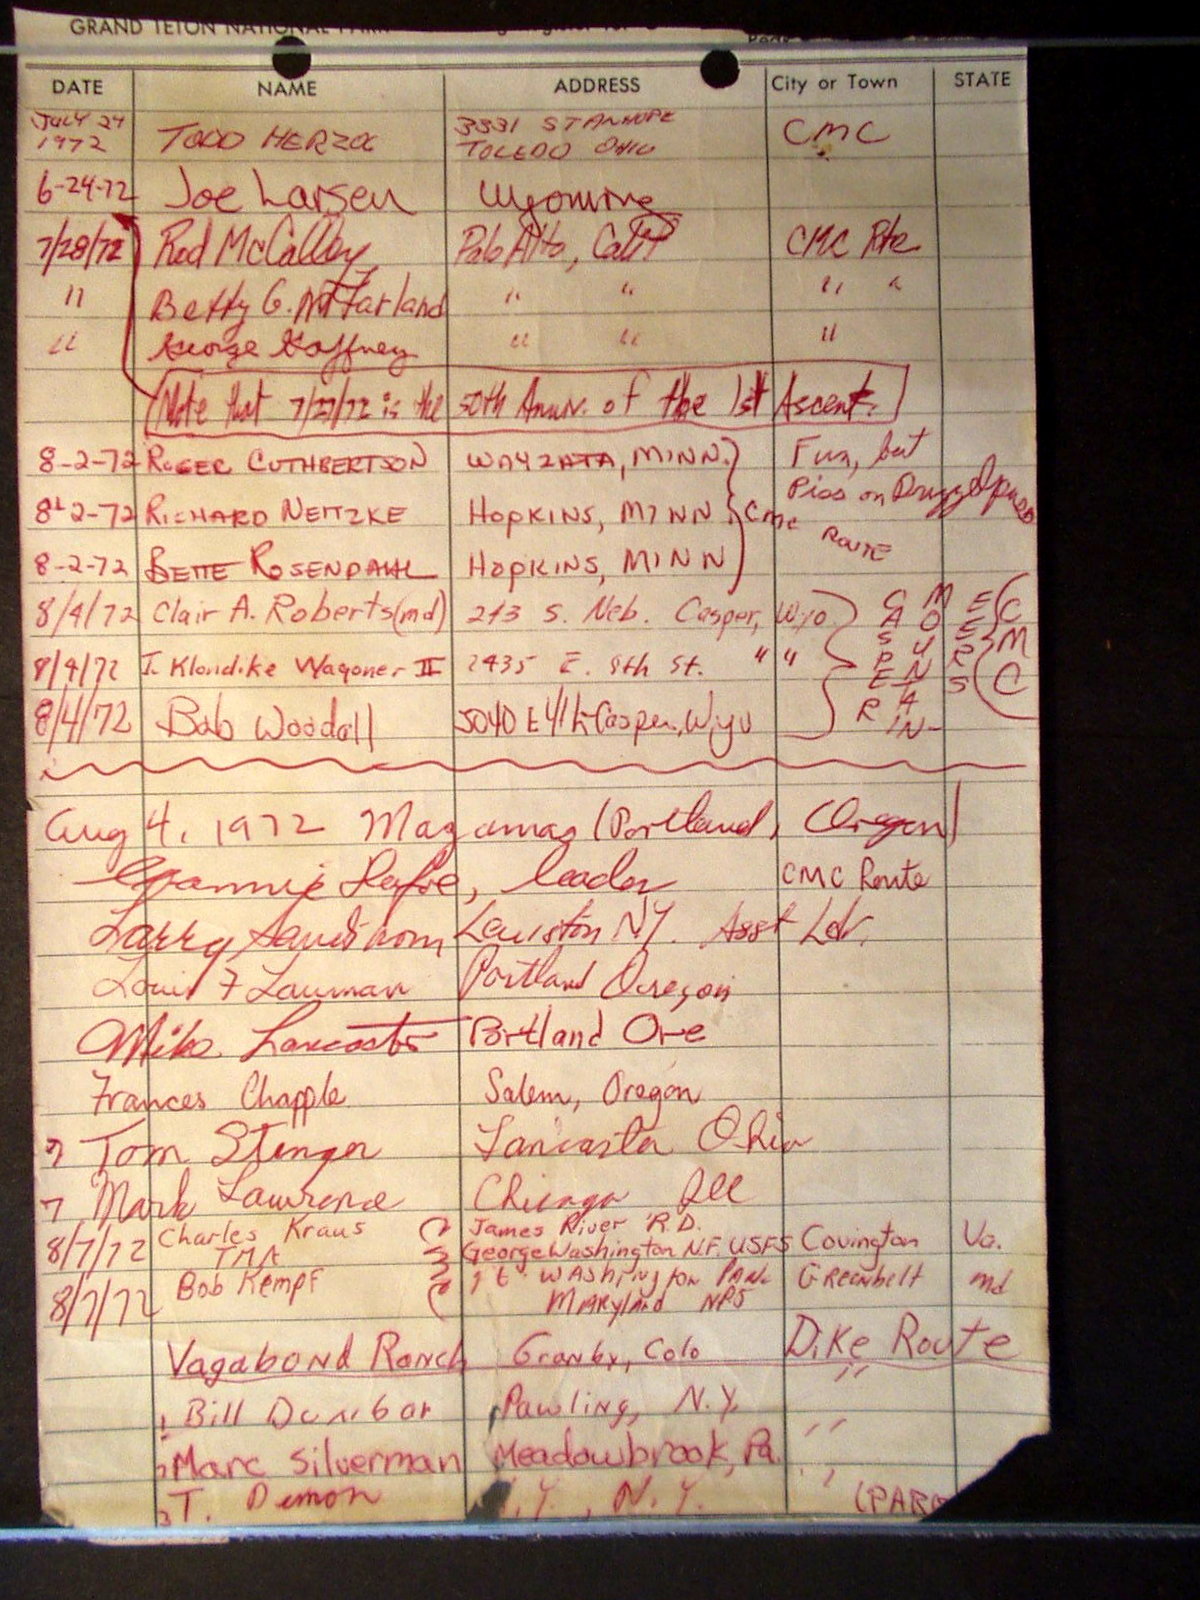 GRAND TETON NATIONAL PARK
DATE NAME ADDRESS City or Town STATE
JULY 24 1972 TODD HERZOG 3331 STANHOPE TOLEDO OHIO CMC
6-24-72 Joe Larsen Wyoming
7/28/72 Rod McCalley Palo Alto, Calif CMC Rte
" Betty G. McFarland " " " "
" George Gaffney " " "
Note that 7/27/72 is the 50th Anniv. of the 1st Ascent.
8-2-72 ROGER CUTHBERTSON WAYZATA, MINN. Fun, but
Piss on
8-2-72 RICHARD NEITZKE HOPKINS, MINN CMC ROUTE
8-2-72 BETTE ROSENDAHL HOPKINS, MINN
8/4/72 Clair A. Roberts (md) 243 S. Neb. Casper, Wyo
8/4/72 I. Klondike Wagoner II 2435 E. 8th St. " "
8/4/72 Bob Woodall 5040 E 41st Casper, Wyo
CASPER MOUNTAIN-EERS CMC
Aug 4, 1972 Mazamas (Portland, Oregon)
leader CMC Route
Larry Sandstrom Lewiston NY. Asst Ldr.
Louis F Lauman Portland Oregon
Mike Lancaster Portland Ore
Frances Chapple Salem, Oregon
7 Tom Stenger Lancaster Ohio
7 Mark Lawrence Chicago Ill
8/7/72 Charles Kraus TMA James River R.D. George Washington N.F. USFS Covington Va.
8/7/72 Bob Kempf WASHINGTON MARYLAND NPS GREENBELT md
Vagabond Ranch Granby, Colo Dike Route
1 Bill Dunbar Pawling, N.Y. "
2 Marc Silverman Meadowbrook, Pa. "
3 T. Demon N.Y., N.Y. "